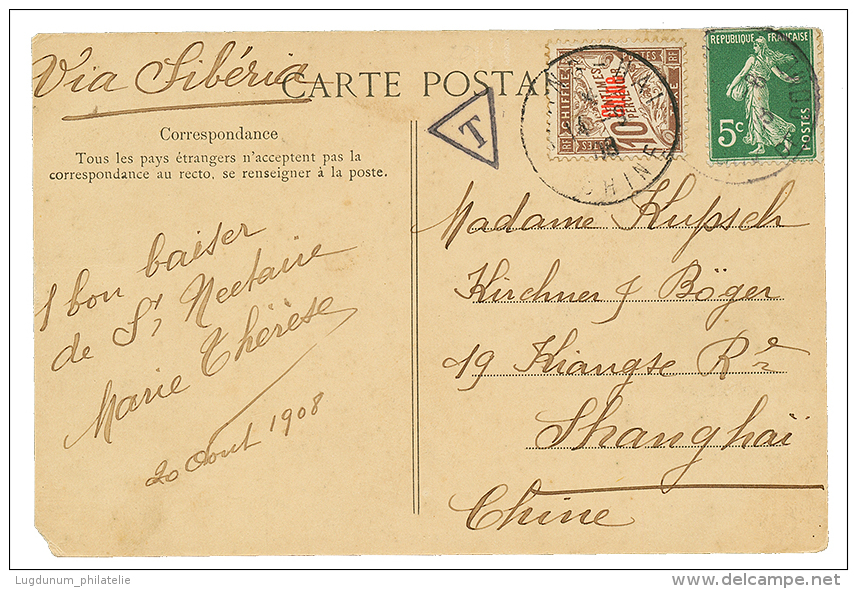 Via Sibérie
CARTE POSTA
Correspondance
Tous les pays étrangers n'acceptent pas la
correspondance au recto, se renseigner à la poste.
T
CHIFFRE
10
REPUBLIQUE FRANÇAISE
5c
POSTES
CHINE
Madame Kupsch
Kirchner & Böger
19 Kiangse Rd
Shanghaï
Chine
1 bon baiser
de St Nectaire
Marie Thérèse
20 Aout 1908
Lugdunum_philatelie
delcampe.net